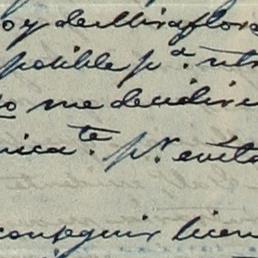 oy de Miraflores
posible pᵃ ntr
to me decidir
nicaᵗᵉ. pʳ evita
conseguir licen